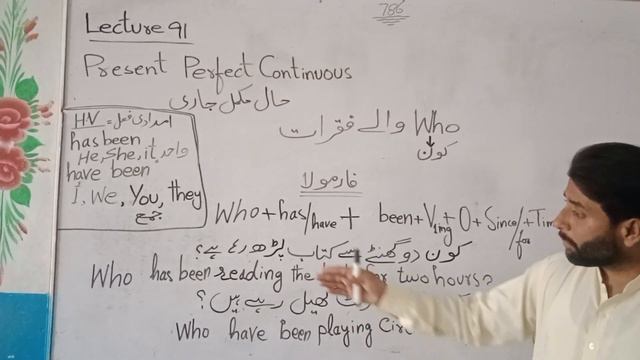 786
Lecture 91
Present Perfect Continuous
حال مکمل جاری
Who والے فقرات
کون
HV = امدادی فعل
has been
He, She, it واحد
have been
I, We, You, they
جمع
فارمولا
Who + has/have + been + V1 + ing + O + Since/for + Tim
کون دو گھنٹے سے کتاب پڑھ رہا ہے؟
Who has been reading the for two hours?
کھیل رہے ہیں؟
Who have been playing Cri